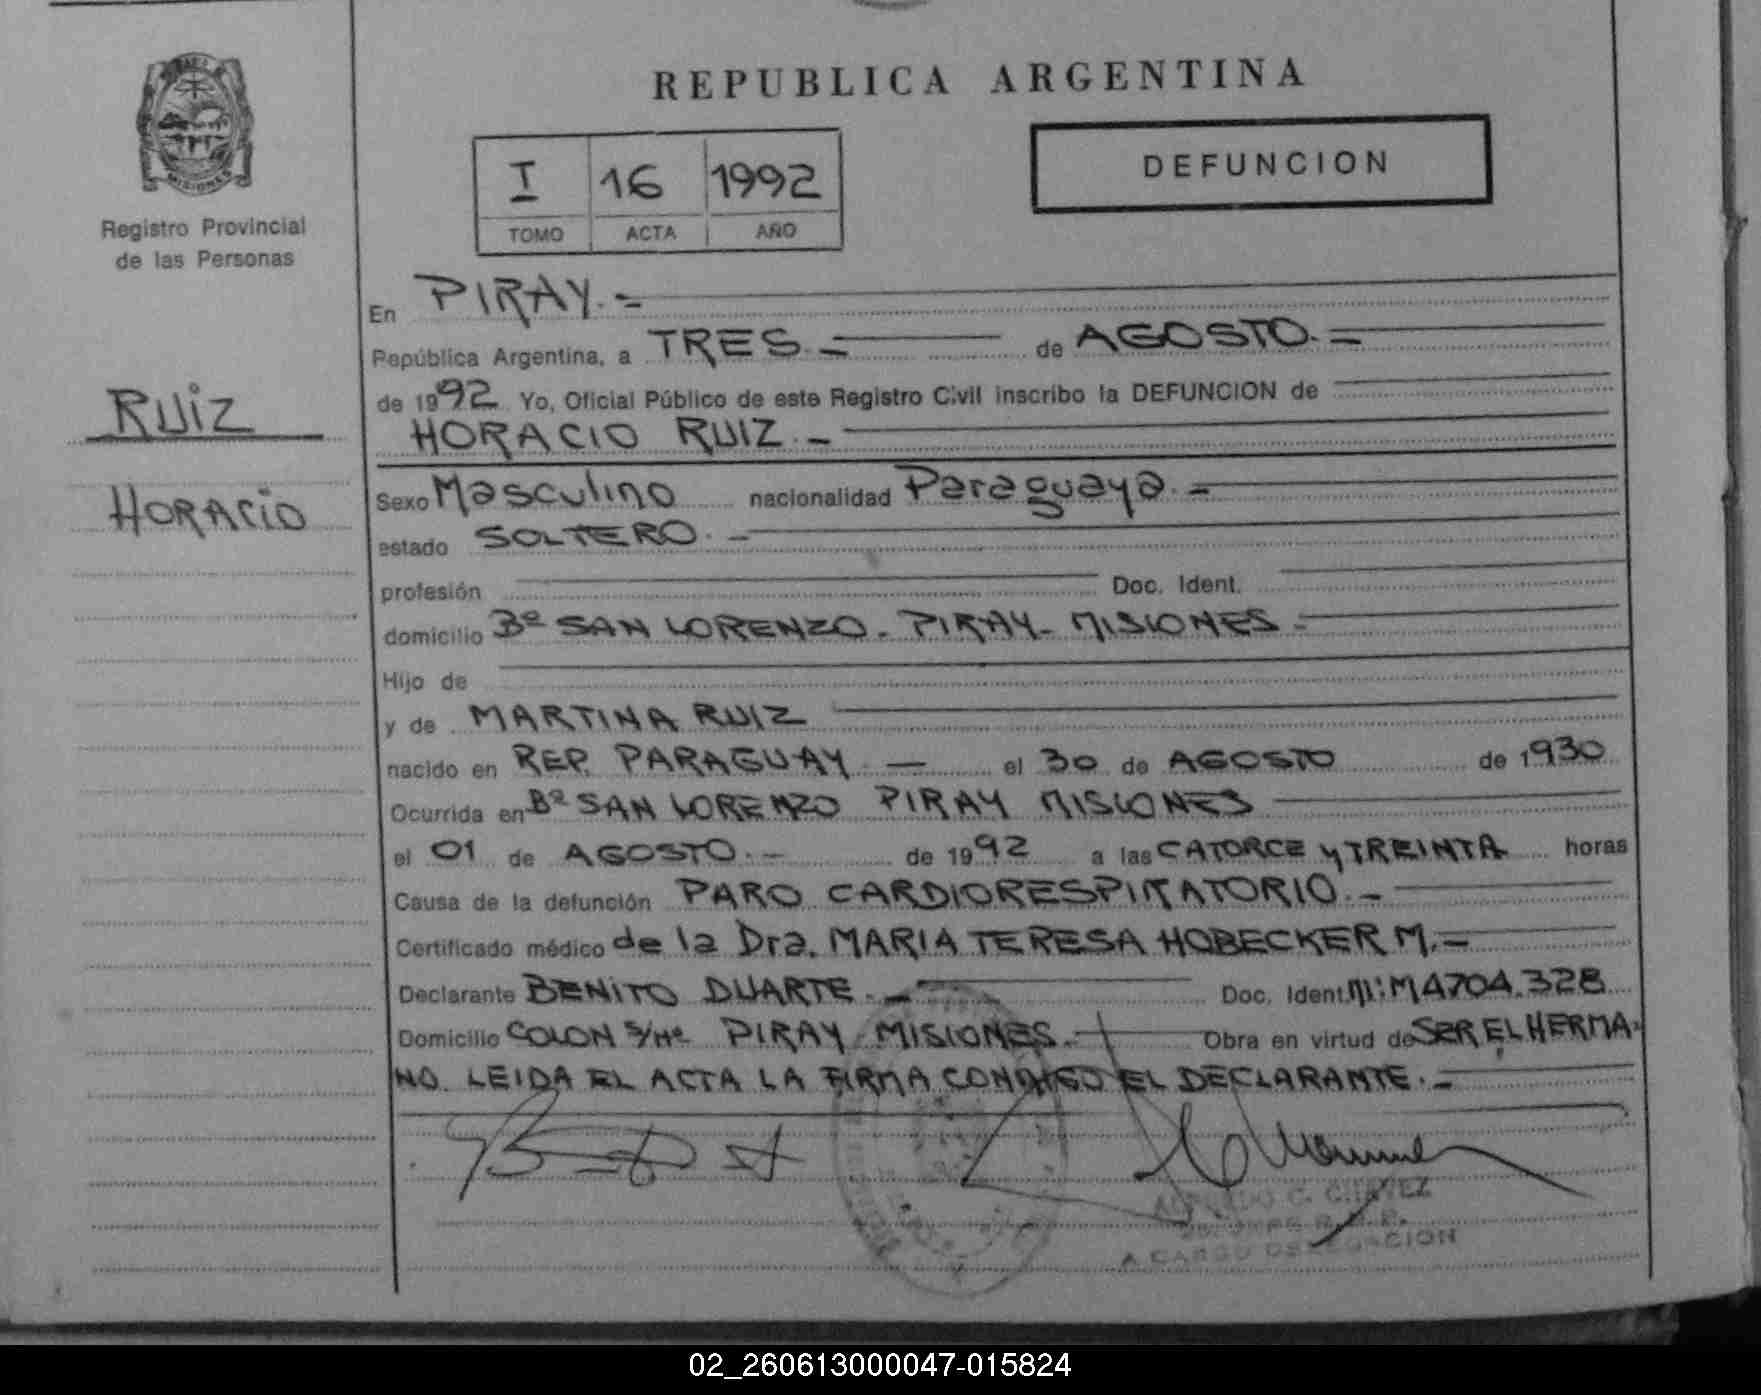 REPUBLICA ARGENTINA
MISIONES
Registro Provincial
de las Personas
I 16 1992
TOMO ACTA AÑO
DEFUNCION
Ruiz
Horacio
En PIRAY.=
República Argentina, a TRES.= de AGOSTO.=
de 1992 Yo, Oficial Público de este Registro Civil inscribo la DEFUNCION de
HORACIO RUIZ.=
Sexo Masculino nacionalidad Paraguaya.=
estado SOLTERO.=
profesión Doc. Ident.
domicilio Bº SAN LORENZO. PIRAY- MISIONES-
Hijo de
y de MARTINA RUIZ
nacido en REP. PARAGUAY — el 30 de AGOSTO de 1930
Ocurrida en Bº SAN LORENZO PIRAY MISIONES
el 01 de AGOSTO.- de 1992 a las CATORCE y TREINTA horas
Causa de la defunción PARO CARDIORESPIRATORIO.-
Certificado médico de la Dra. MARIA TERESA HOBECKER M.=
Declarante BENITO DUARTE.- Doc. Ident. MI:M4704.328
Domicilio COLON S/Nº PIRAY- MISIONES.- Obra en virtud de SER EL HERMA-
NO. LEIDA EL ACTA LA FIRMA CONMIGO EL DECLARANTE.-
C. CHAVEZ
A CARGO DELEGACION
02_260613000047-015824